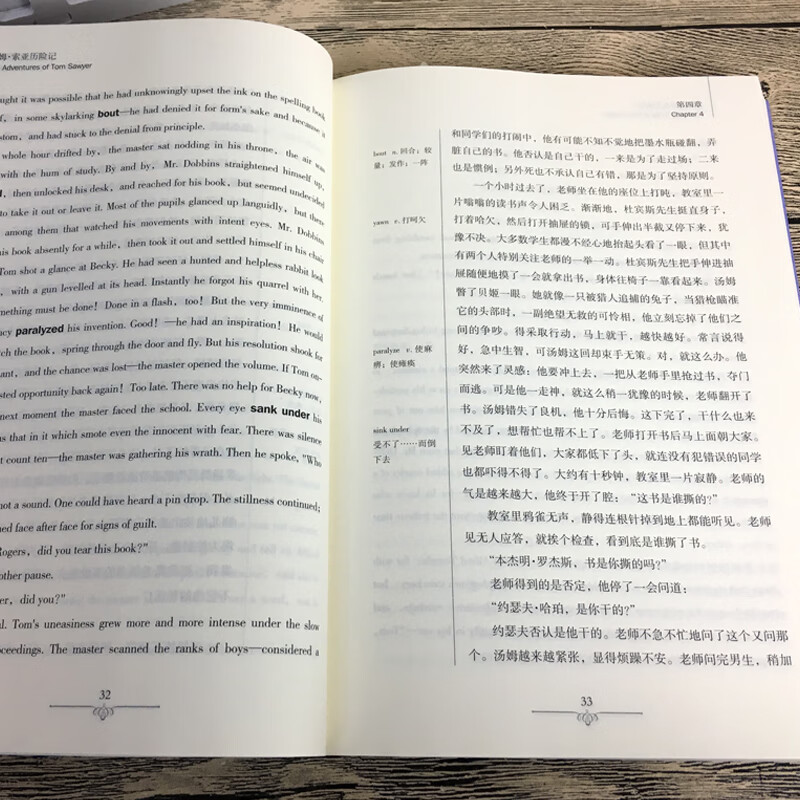 姆·索亚历险记
Adventures of Tom Sawyer
ught it was possible that he had unknowingly upset the ink on the spelling book
f, in some skylarking bout—he had denied it for form's sake and because it
stom, and had stuck to the denial from principle.
whole hour drifted by, the master sat nodding in his throne, the air was
with the hum of study. By and by, Mr. Dobbins straightened himself up,
, then unlocked his desk, and reached for his book, but seemed undecided
to take it out or leave it. Most of the pupils glanced up languidly, but there
among them that watched his movements with intent eyes. Mr. Dobbins
his book absently for a while, then took it out and settled himself in his chair
Tom shot a glance at Becky. He had seen a hunted and helpless rabbit look
, with a gun levelled at its head. Instantly he forgot his quarrel with her.
mething must be done! Done in a flash, too! But the very imminence of
ncy paralyzed his invention. Good! —he had an inspiration! He would
tch the book, spring through the door and fly. But his resolution shook for
ant, and the chance was lost—the master opened the volume. If Tom on-
sted opportunity back again! Too late. There was no help for Becky now,
next moment the master faced the school. Every eye sank under his
s that in it which smote even the innocent with fear. There was silence
t count ten—the master was gathering his wrath. Then he spoke, "Who
not a sound. One could have heard a pin drop. The stillness continued;
hed face after face for signs of guilt.
Rogers, did you tear this book?"
other pause.
er, did you?"
al. Tom's uneasiness grew more and more intense under the slow
oceedings. The master scanned the ranks of boys—considered a
32
第四章
Chapter 4
bout n. 回合；较
量；发作；一阵
yawn v. 打呵欠
paralyze v. 使麻
痹；使瘫痪
sink under
受不了……而倒
下去
和同学们的打闹中，他有可能不知不觉地把墨水瓶碰翻，弄
脏自己的书。他否认是自己干的，一来是为了走过场；二来
也是惯例；另外死也不承认自己有错，那是为了坚持原则。
一个小时过去了，老师坐在他的座位上打盹，教室里一
片嗡嗡的读书声令人困乏。渐渐地，杜宾斯先生挺直身子，
打着哈欠，然后打开抽屉的锁，可手伸出半截又停下来，犹
豫不决。大多数学生都漫不经心地抬起头看了一眼，但其中
有两个人特别关注老师的一举一动。杜宾斯先生把手伸进抽
屉随便地摸了一会就拿出书，身体往椅子一靠看起来。汤姆
瞥了贝姬一眼。她就像一只被猎人追捕的兔子，当猎枪瞄准
它的头部时，一副绝望无救的可怜相，他立刻忘掉了他们之
间的争吵。得采取行动，马上就干，越快越好。常言说得
好，急中生智，可汤姆这回却束手无策。对，就这么办。他
突然来了灵感：他要冲上去，一把从老师手里抢过书，夺门
而逃。可是他一走神，就这么稍一犹豫的时候，老师翻开了
书。汤姆错失了良机，他十分后悔。这下完了，干什么也来
不及了，想帮忙也帮不上了。老师打开书后马上面朝大家。
见老师盯着他们，大家都低下了头，就连没有犯错误的同学
也都吓得不得了。大约有十秒钟，教室里一片寂静。老师的
气是越来越大，他终于开了腔：“这书是谁撕的?”
教室里鸦雀无声，静得连根针掉到地上都能听见。老师
见无人应答，就挨个检查，看到底是谁撕了书。
“本杰明·罗杰斯，书是你撕的吗?”
老师得到的是否定，他停了一会问道：
“约瑟夫·哈珀，是你干的?”
约瑟夫否认是他干的。老师不急不忙地问了这个又问那
个。汤姆越来越紧张，显得烦躁不安。老师问完男生，稍加
33